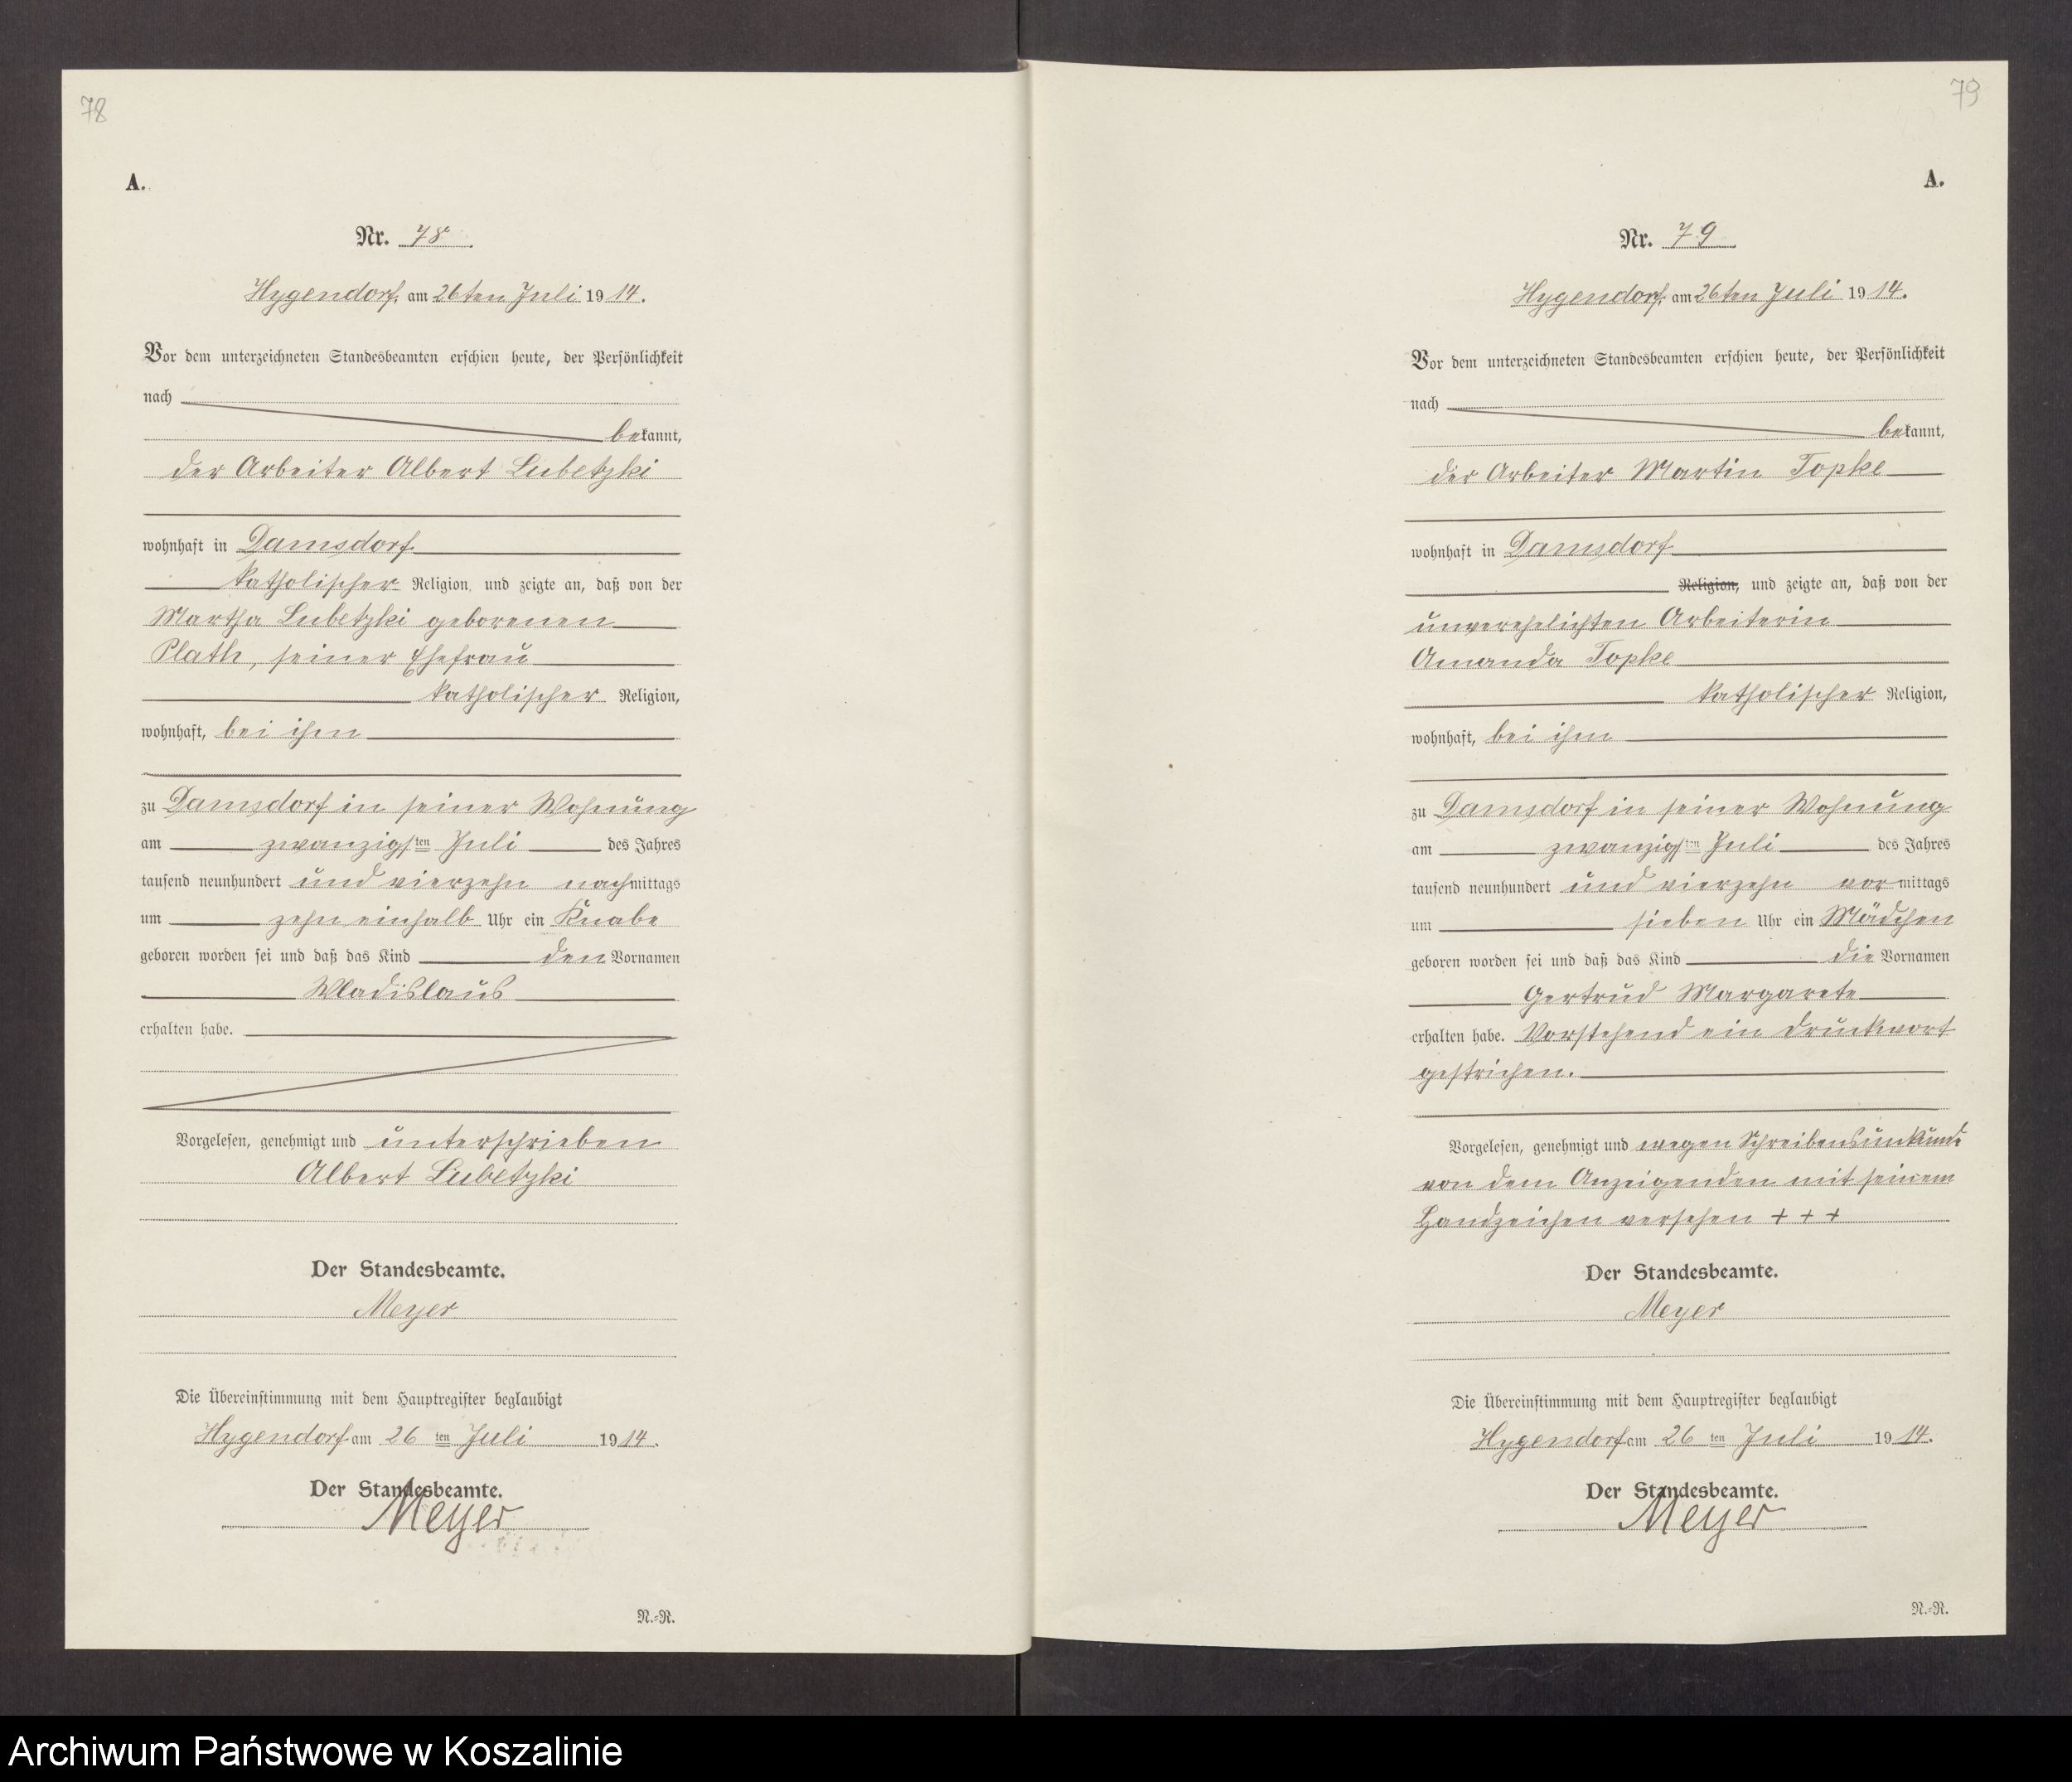 78
A.
Nr. 78
Hygendorf, am 26ten Juli 1914.
Vor dem unterzeichneten Standesbeamten erschien heute, der Persönlichkeit
nach
bekannt,
der Arbeiter Albert Lubetzki
wohnhaft in Damsdorf
katholischer Religion, und zeigte an, daß von der
Martha Lubetzki geborenen
Plath, seiner Ehefrau
katholischer Religion,
wohnhaft, bei ihm
zu Damsdorf in seiner Wohnung
am zwanzigsten Juli des Jahres
tausend neunhundert und vierzehn nachmittags
um zehn einhalb Uhr ein Knabe
geboren worden sei und daß das Kind den Vornamen
Wladislaus
erhalten habe.
Vorgelesen, genehmigt und unterschrieben
Albert Lubetzki
Der Standesbeamte.
Meyer
Die Übereinstimmung mit dem Hauptregister beglaubigt
Hygendorf am 26 ten Juli 1914.
Der Standesbeamte.
Meyer
N.-R.
79
A.
Nr. 79
Hygendorf, am 26ten Juli 1914.
Vor dem unterzeichneten Standesbeamten erschien heute, der Persönlichkeit
nach
bekannt,
der Arbeiter Martin Topke
wohnhaft in Damsdorf
Religion, und zeigte an, daß von der
unverehelichten Arbeiterin
Amanda Topke
katholischer Religion,
wohnhaft, bei ihm
zu Damsdorf in seiner Wohnung
am zwanzigsten Juli des Jahres
tausend neunhundert und vierzehn vormittags
um sieben Uhr ein Mädchen
geboren worden sei und daß das Kind die Vornamen
Gertrud Margarete
erhalten habe. Vorstehend ein Druckwort
gestrichen.
Vorgelesen, genehmigt und wegen Schreibensunkunde
von dem Anzeigenden mit seinem
Handzeichen versehen + + +
Der Standesbeamte.
Meyer
Die Übereinstimmung mit dem Hauptregister beglaubigt
Hygendorf am 26 ten Juli 1914.
Der Standesbeamte.
Meyer
N.-R.
Archiwum Państwowe w Koszalinie